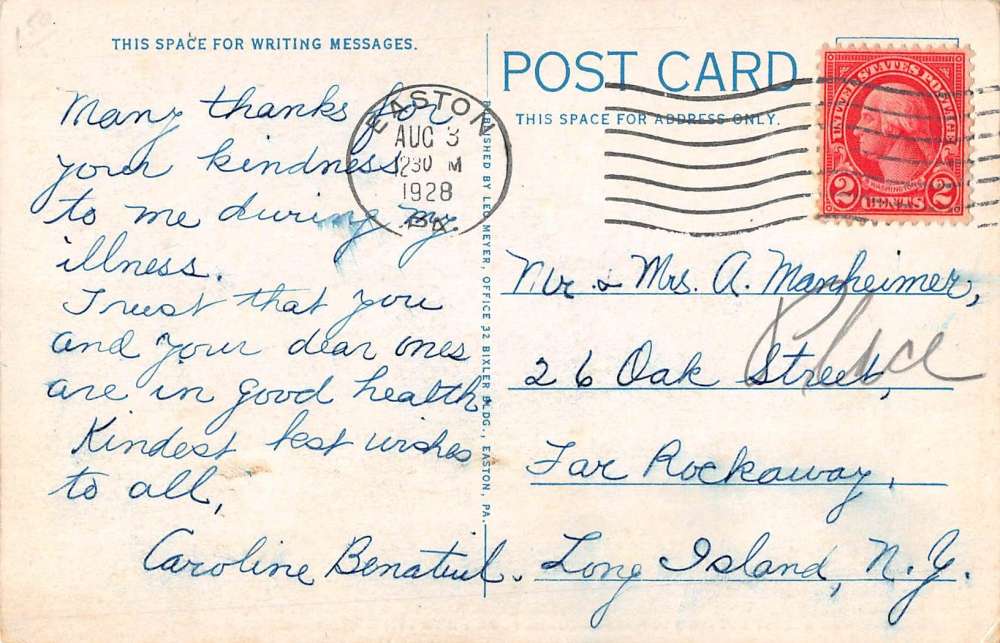 THIS SPACE FOR WRITING MESSAGES.
Many thanks for
your kindness
to me during my
illness.
Trust that you
and your dear ones
are in good health
Kindest best wishes
to all,
Caroline
PUBLISHED BY LEO MEYER, OFFICE 32 BIXLER BLDG., EASTON, PA.
POST CARD
THIS SPACE FOR ADDRESS ONLY.
EASTON
AUG 3
1230 M
1928
PA.
UNITED STATES POSTAGE
WASHINGTON
2 CENTS 2
Mr. & Mrs. A. Manheimer,
26 Oak Street,
Place
Far Rockaway,
Long Island, N.Y.